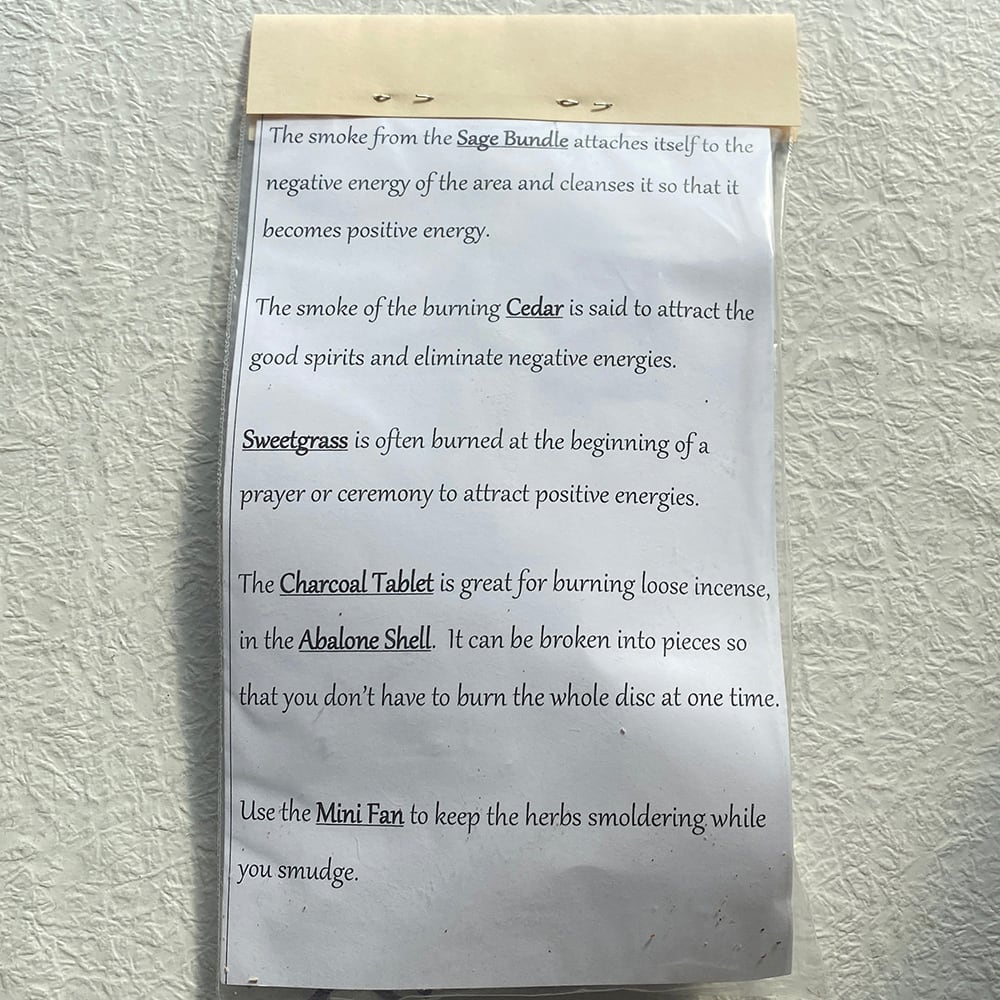 The smoke from the Sage Bundle attaches itself to the
negative energy of the area and cleanses it so that it
becomes positive energy.
The smoke of the burning Cedar is said to attract the
good spirits and eliminate negative energies.
Sweetgrass is often burned at the beginning of a
prayer or ceremony to attract positive energies.
The Charcoal Tablet is great for burning loose incense,
in the Abalone Shell. It can be broken into pieces so
that you don't have to burn the whole disc at one time.
Use the Mini Fan to keep the herbs smoldering while
you smudge.